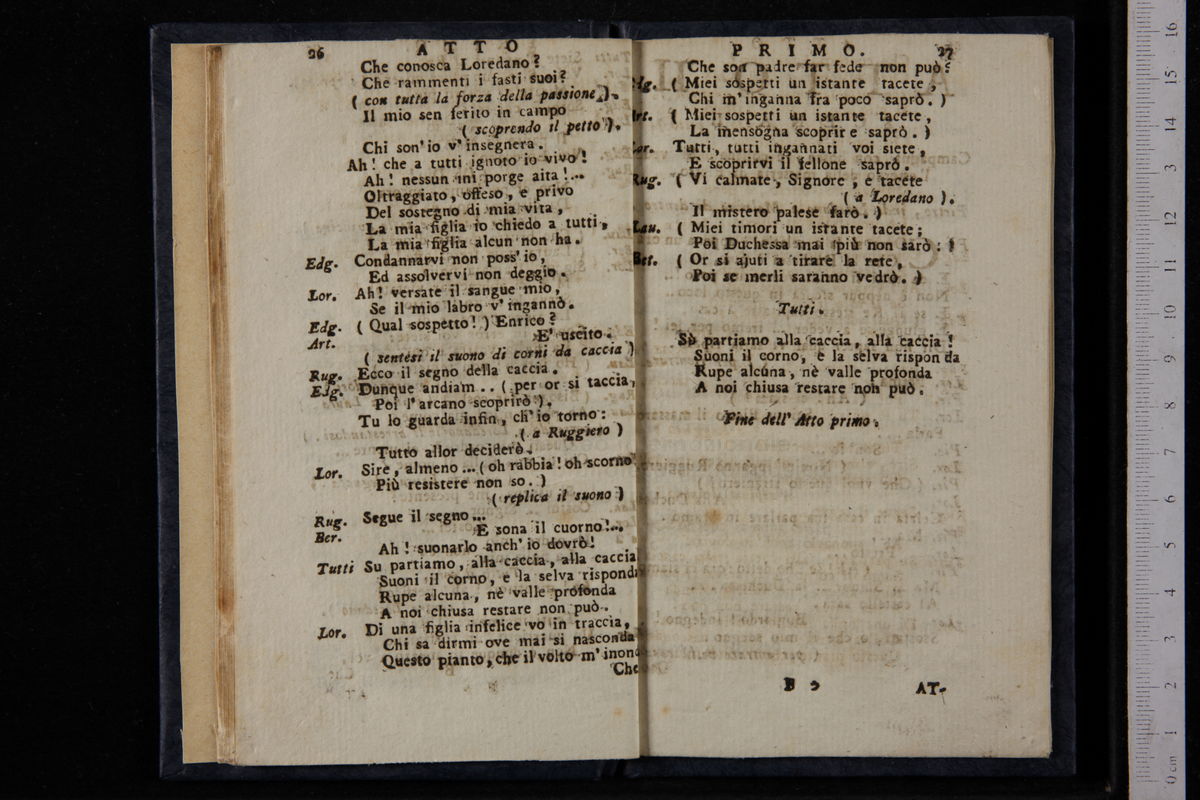 26
ATTO
Che conosca Loredano?
Che rammenti i fasti suoi?
( con tutta la forza della passione ).
Il mio sen ferito in campo
( scoprendo il petto ).
Chi son' io v' insegnera.
Ah! che a tutti ignoto io vivo!
Ah! nessun mi porge aita!...
Oltraggiato, offeso, e privo
Del sostegno di mia vita,
La mia figlia io chiedo a tutti,
La mia figlia alcun non ha.
Edg. Condannarvi non poss' io,
Ed assolvervi non deggio.
Lor. Ah! versate il sangue mio,
Se il mio labro v' ingannò.
Edg. ( Qual sospetto! ) Enrico?
Art. E' uscito.
( sentesi il suono di corni da caccia )
Rug. Ecco il segno della caccia.
Edg. Dunque andiam .. ( per or si taccia,
Poi l' arcano scoprirò ).
Tu lo guarda infin, ch' io torno:
( a Ruggiero )
Tutto allor deciderò.
Lor. Sire, almeno ... ( oh rabbia! oh scorno
Più resistere non so. )
( replica il suono )
Rug. Segue il segno...
Ber. E sona il cuorno!...
Ah! suonarlo anch' io dovrò!
Tutti Su partiamo, alla caccia, alla caccia
Suoni il corno, e la selva rispond
Rupe alcuna, nè valle profonda
A noi chiusa restare non può.
Lor. Di una figlia infelice vo in traccia,
Chi sa dirmi ove mai si nasconda
Questo pianto, che il volto m' inon
Che
PRIMO.
27
Che son padre far fede non può?
dg. ( Miei sospetti un istante tacete,
Chi m' inganna fra poco saprò. )
rt. ( Miei sospetti un istante tacete,
La mensogna scoprire saprò. )
or. Tutti, tutti ingannati voi siete,
E scoprirvi il fellone saprò.
Rug. ( Vi calmate, Signore, e tacete
( a Loredano ).
Il mistero palese farò. )
Lau. ( Miei timori un istante tacete;
Poi Duchessa mai più non sarò: )
Bet. ( Or si ajuti a tirare la rete,
Poi se merli saranno vedrò. )
Tutti.
Sù partiamo alla caccia, alla caccia!
Suoni il corno, e la selva risponda
Rupe alcuna, nè valle profonda
A noi chiusa restare non può.
Fine dell' Atto primo.
B 2
AT-
0 cm 1 2 3 4 5 6 7 8 9 10 11 12 13 14 15 16